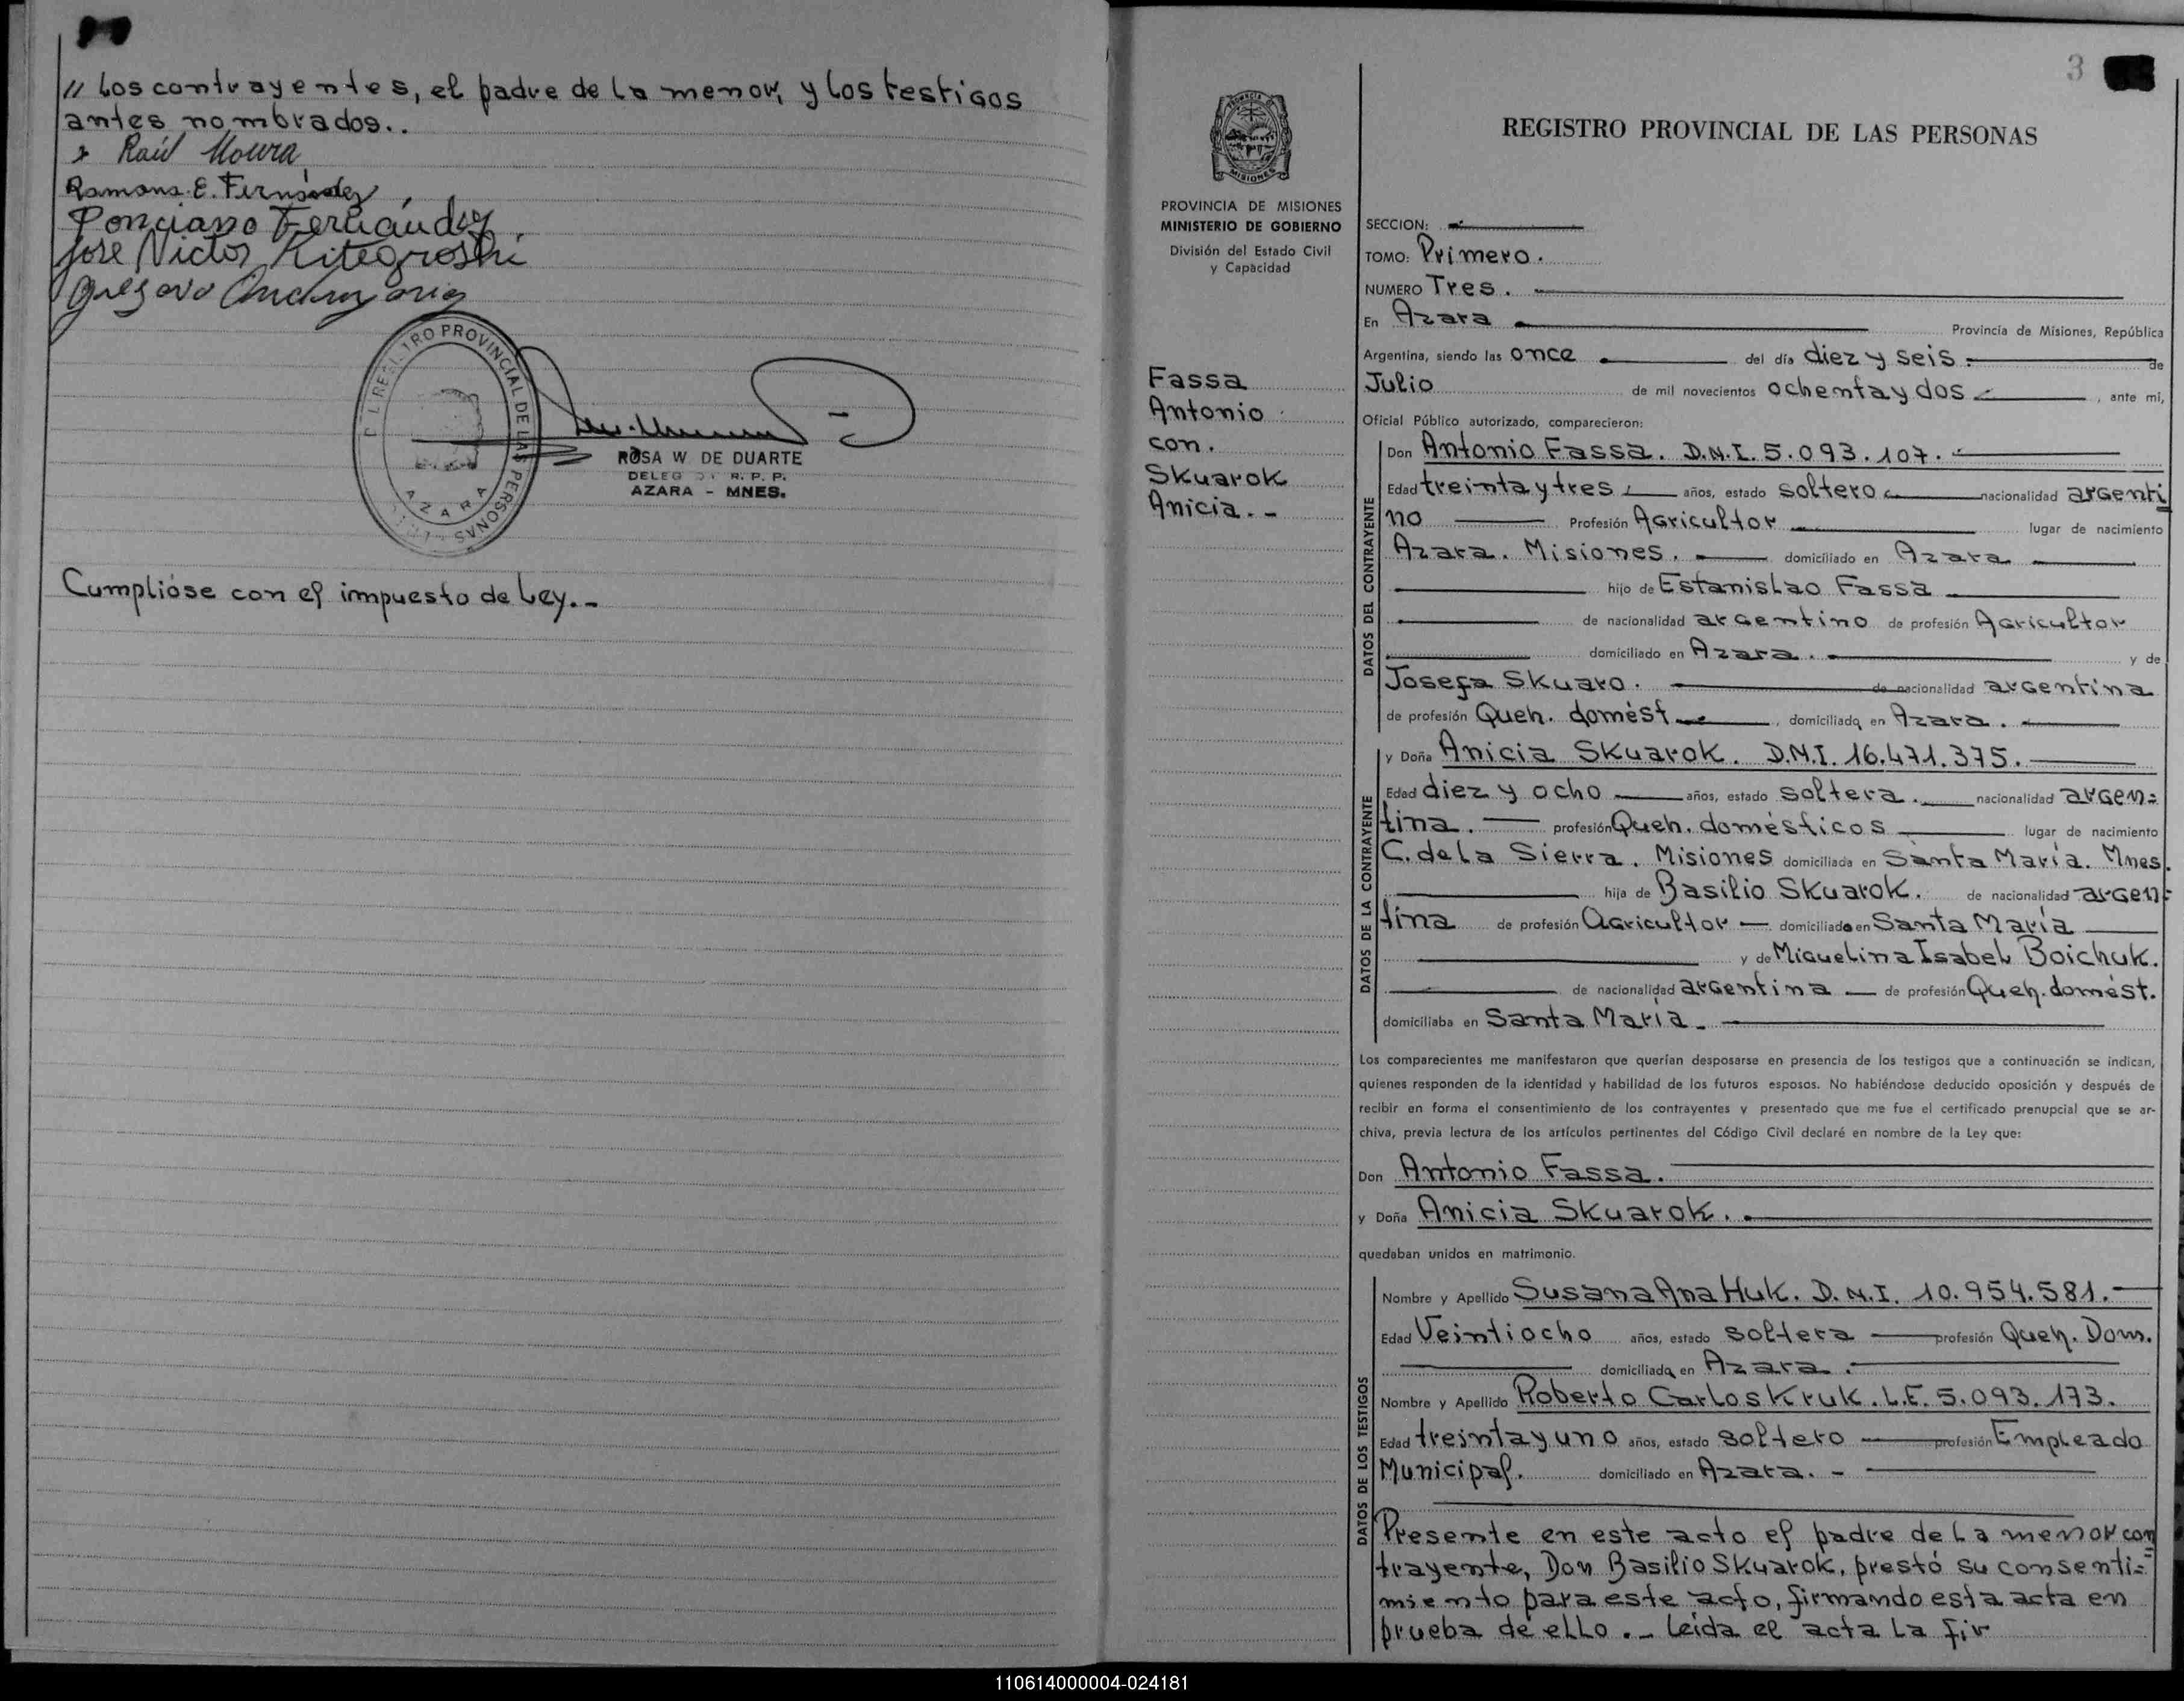 // Los contrayentes, el padre de la menor, y los testigos
antes nombrados..
Raúl Moura
Ramona E. Fernández
Ponciano Fernández
José Victor
REGISTRO PROVINCIAL DE LAS PERSONAS
AZARA
ROSA W. DE DUARTE
DELEG R. P. P.
AZARA - MNES.
Cumplióse con el impuesto de Ley.-
3
PROVINCIA DE MISIONES
MINISTERIO DE GOBIERNO
División del Estado Civil
y Capacidad
Fassa
Antonio
con.
Skuarok
Anicia.-
REGISTRO PROVINCIAL DE LAS PERSONAS
SECCION:
TOMO: Primero.
NUMERO Tres.
En Azara Provincia de Misiones, República
Argentina, siendo las once del día diez y seis de
Julio de mil novecientos ochenta y dos, ante mí,
Oficial Público autorizado, comparecieron:
DATOS DEL CONTRAYENTE
Don Antonio Fassa. D.N.I. 5.093.107.
Edad treinta y tres años, estado soltero nacionalidad argenti
no Profesión Agricultor lugar de nacimiento
Azara. Misiones. domiciliado en Azara
hijo de Estanislao Fassa
de nacionalidad argentino de profesión Agricultor
domiciliado en Azara. y de
Josefa Skuaro. de nacionalidad argentina
de profesión Queh. domést. domiciliada en Azara.
DATOS DE LA CONTRAYENTE
y Doña Anicia Skuarok. D.N.I. 16.471.375.
Edad diez y ocho años, estado soltera. nacionalidad argen=
tina. profesión Queh. domésticos lugar de nacimiento
C. de la Sierra. Misiones domiciliada en Santa María. Mnes.
hija de Basilio Skuarok. de nacionalidad argen=
tina de profesión Agricultor domiciliado en Santa María
y de Miguelina Isabel Boichuk.
de nacionalidad argentina de profesión Queh. domést.
domiciliaba en Santa María.
Los comparecientes me manifestaron que querían desposarse en presencia de los testigos que a continuación se indican,
quienes responden de la identidad y habilidad de los futuros esposos. No habiéndose deducido oposición y después de
recibir en forma el consentimiento de los contrayentes y presentado que me fue el certificado prenupcial que se ar-
chiva, previa lectura de los artículos pertinentes del Código Civil declaré en nombre de la Ley que:
Don Antonio Fassa.
y Doña Anicia Skuarok.
quedaban unidos en matrimonio.
DATOS DE LOS TESTIGOS
Nombre y Apellido Susana Ana Huk. D.N.I. 10.954.581.
Edad Veintiocho años, estado soltera profesión Queh. Dom.
domiciliada en Azara.
Nombre y Apellido Roberto Carlos Kruk. L.E. 5.093.173.
Edad treinta y uno años, estado soltero profesión Empleado
Municipal. domiciliado en Azara.-
Presente en este acto el padre de la menor con
trayente, Don Basilio Skuarok, prestó su consenti=
miento para este acto, firmando esta acta en
prueba de ello.- Leída el acta la fir
110614000004-024181